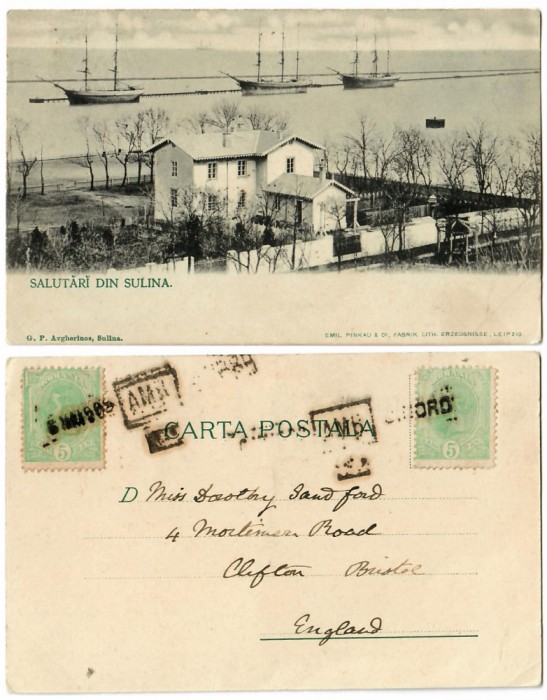 SALUTĂRĬ DIN SULINA.
G. P. Avgherinos, Sulina.
EMIL PINKAU & Co, FABRIK LITH. ERZEUGNISSE, LEIPZIG.
5
5
CARTA POSTALA
D Miss Dorothy Sandford
4 Mortimer Road
Clifton Bristol
England